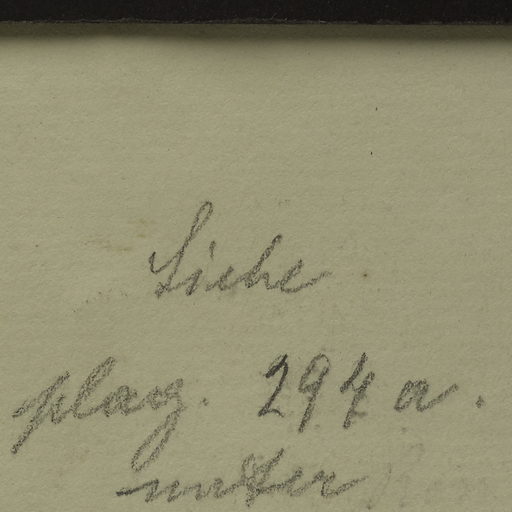 Siehe
plag. 294 a.
unter